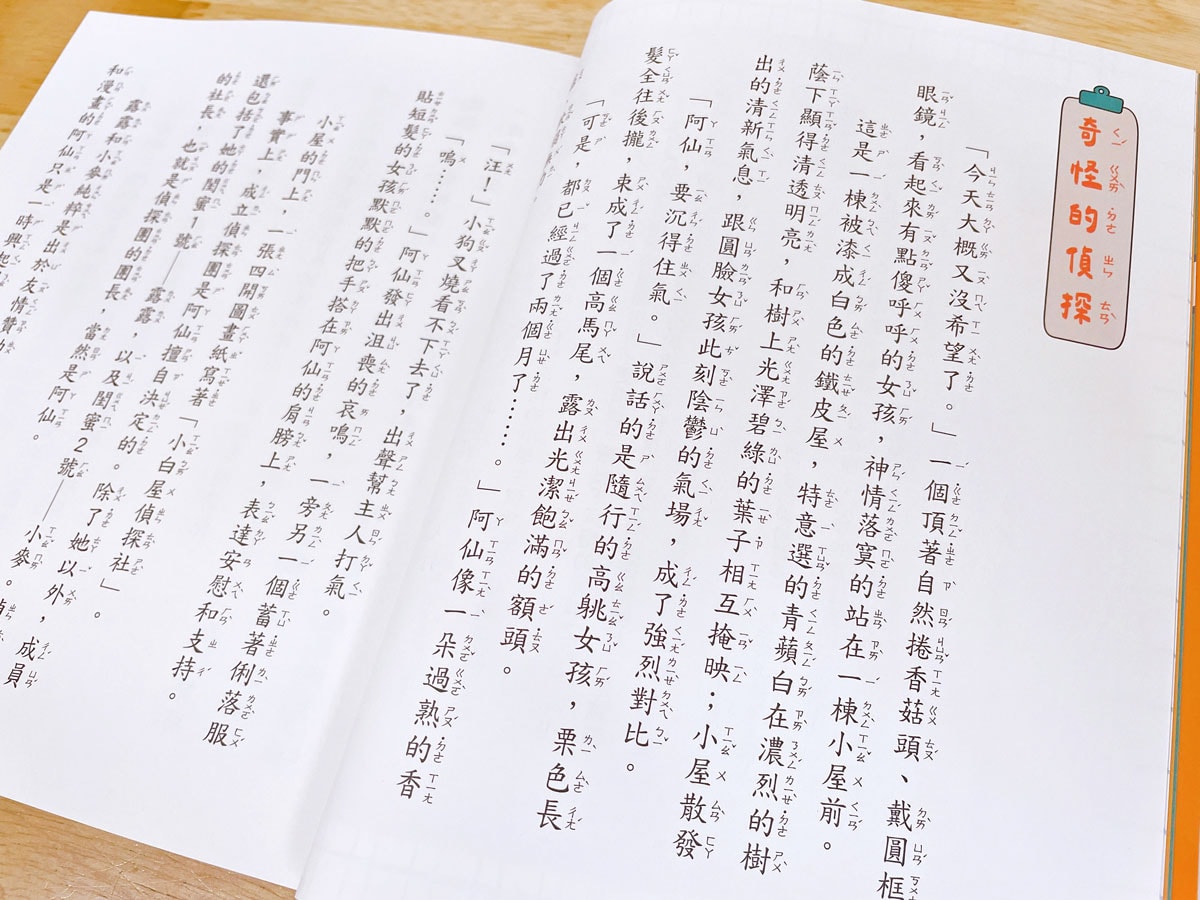 奇怪的偵探
「今天大概又沒希望了。」一個頂著自然捲香菇頭、戴圓框
眼鏡，看起來有點傻呼呼的女孩，神情落寞的站在一棟小屋前。
這是一棟被漆成白色的鐵皮屋，特意選的青蘋白在濃烈的樹
蔭下顯得清透明亮，和樹上光澤碧綠的葉子相互掩映；小屋散發
出的清新氣息，跟圓臉女孩此刻陰鬱的氣場，成了強烈對比。
「阿仙，要沉得住氣。」說話的是隨行的高䠷女孩，栗色長
髮全往後攏，束成了一個高馬尾，露出光潔飽滿的額頭。
「可是，都已經過了兩個月了……。」阿仙像一朵過熟的香
「汪！」小狗又燒看不下去了，出聲幫主人打氣。
「嗚……。」阿仙發出沮喪的哀鳴，一旁另一個蓄著俐落服
貼短髮的女孩默默的把手搭在阿仙的肩膀上，表達安慰和支持。
小屋的門上，一張四開圖畫紙寫著「小白屋偵探社」。
事實上，成立偵探團是阿仙擅自決定的。除了她以外，成員
還包括了她的閨蜜1號——露露，以及閨蜜2號——小麥。
的社長，也就是偵探團的團長，當然是阿仙。
露露和小麥純粹是出於友情贊助
和漫畫的阿仙只是一時興起